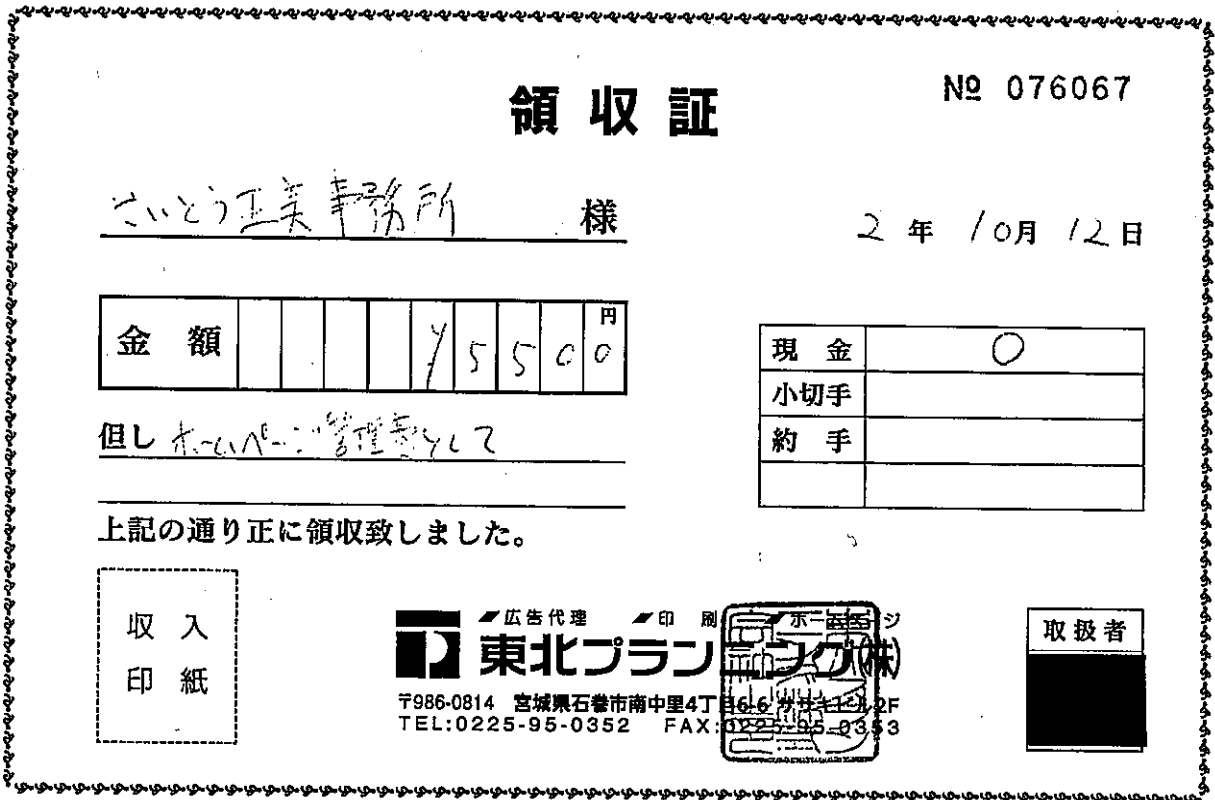 領収証
№ 076067
さいとう正美事務所 様
2 年 10月 12日
金額 ¥5500円
現金 ○
小切手
約手
但し ホームページ管理費として
上記の通り正に領収致しました。
収入
印紙
広告代理 印刷 ホームページ
東北プランニング(株)
〒986-0814 宮城県石巻市南中里4丁目6-6 ササキビル2F
TEL:0225-95-0352 FAX:0225-95-0353
取扱者